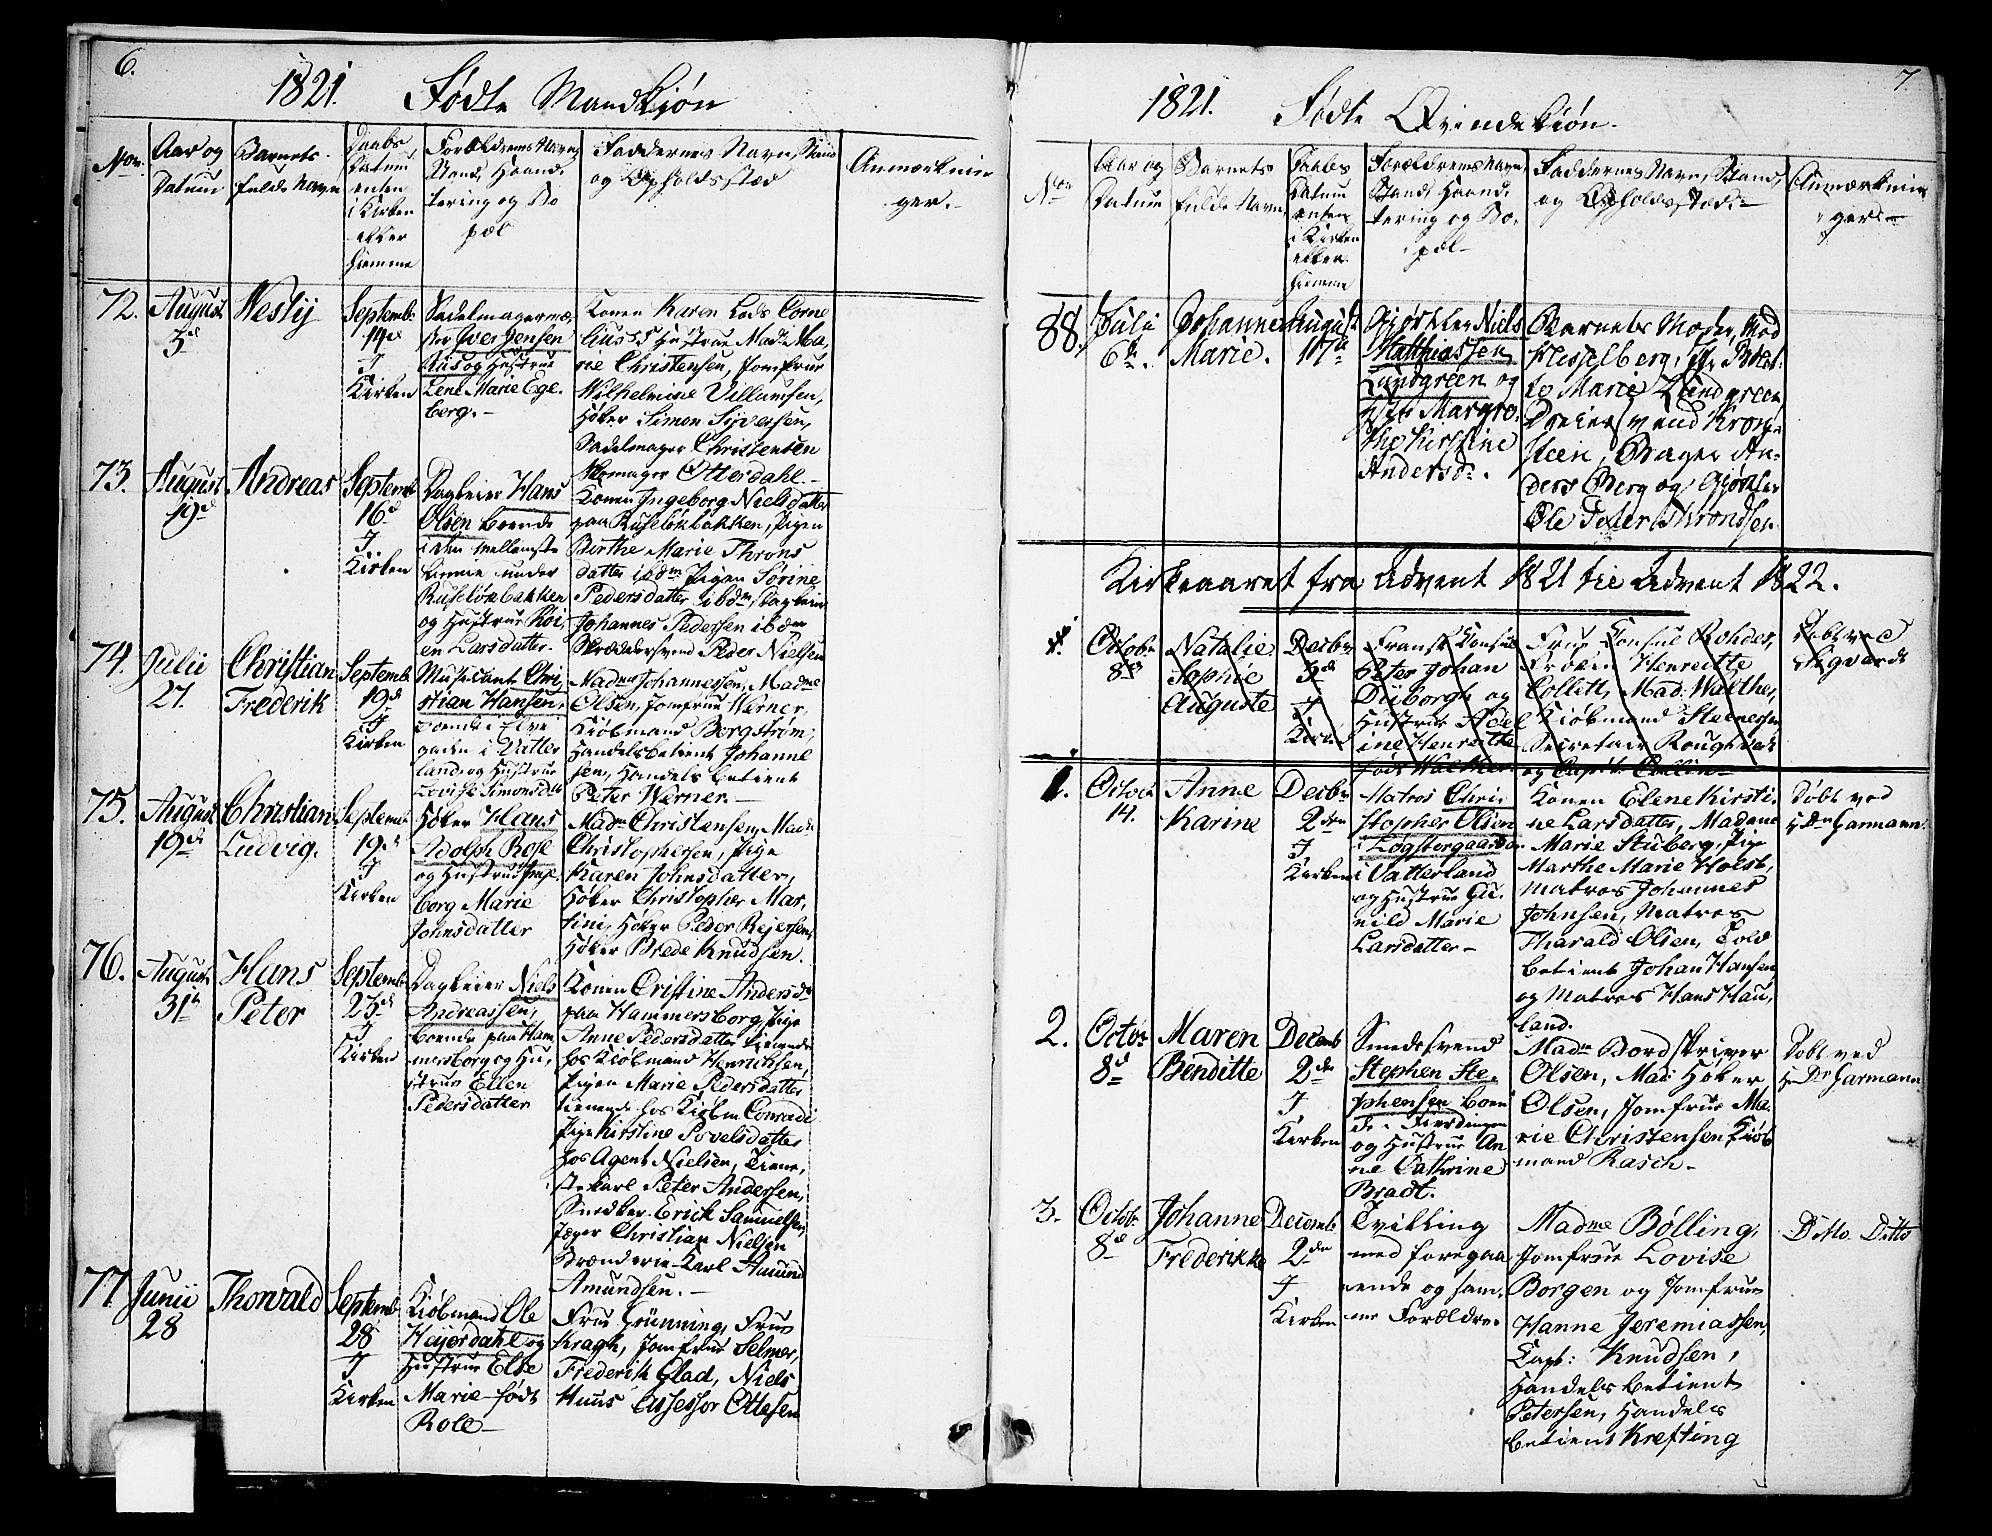 6.
1821. Fødte Mandkjøn
No.
Aar og
Datum
Barnets
fulde Navn
Daabs
Datum
enten
i Kirken
eller
hiemme
Forældrenes Navn
Stand, Haand
tering og Bo
pæl
Faddernes Navn, Stand
og Opholdsstæd
Anmærknin
ger.-
72.
August
5d
Westy
Septemb.
19d
I
Kirken
Sadelmagermæ,
ster Iver Jensen
Aas og Hustrue
Lene Marie Ege
berg.-
Konen Karen Lods Corne
lius's Hustrue Madm Ma,
rie Christensen, Jomfrue
Wilhelmine Villumsen,
Høker Simon Syversen,
Sadelmager Christensen
Otterdahl.-
73.
August
19d
Andreas
Septemb
16d
I
Kirken
Dagleier Hans
Olsen boende
i den mellemste
under
Ruseløkbakken
og Hustrue
en Larsdatter.
Konen Ingeborg Nielsdatter
paa Ruseløkbakken, Pigen
Birthe Marie Throns
datter ibdm Pigen Sørine
Pedersdatter ibdm, Dagleier
Johannes Pedersen ibdm
Skræddersvend Peder Nielsen
74.
Julii
27.
Christian
Frederik
Septemb
19d
I
Kirken
Musicant Chri
stian Hansen,
boende i Elve
gaden i Vatter
land, og Hustrue
Lovise Simonsdatter
Madme Johannessen, Madme
Olsen, Jomfrue Werner,
Kiøbmand Bergstrøm,
Handelsbetient Johanne
sen, Handels betient
Peter Werner.-
75.
August
19d
Christian
Ludvig.
Septemb
19d
I
Kirken
Høker Hans
Adolph Rose
og Hustrue Inge,
borg Marie
Johnsdatter
Madm Christensen, Madm
Christophersen, Pige
Karen Johnsdatter,
Høker Christopher Mar,
tini, Høker Peder Rejersen,
Høker Brede Knudsen.
76.
August
31te
Hans
Peter
Septemb
23d
I
Kirken
Dagleier Niels
Andreassen,
boende paa Ham
mersborg og Hu,
strue Ellen
Pedersdatter
Konen Cristine Andersdr
paa Hammersborg, Pige
Anne Pedersdatter tienende
hos Kiøbmand Henrichsen,
Pigen Marie Pedersdatter
tienende hos Kiøbm Conradi
Pige Kirstine Povelsdatter
hos Agent Nielsen, Tiene,
ste Karl Peter Andersen,
Snedker Erick Samuelsen
Jæger Christian Nielsen
Brænderie-Karl Amund
Amundsen.-
77
Junii
28
Thorvald
Septemb
28
I
Kirken
Kiøbmand Ole
Heyerdahl og
Hustrue Else
Marie født
Role-
Frue Grünning, Frue
Kragh, Jomfrue Selmer,
Frederik Glad, Niels
Huus Assessor Ottesen
7.
1821. Fødte Qvindekiøn.
No.
Aar og
Datum
Barnets
fulde Navn
Daabs
Datum
enten
i Kirken
eller
hiemme
Forældrenes Navn
Stand, Haand
tering og Bo,
pæl-
Faddernes Navn, Stand,
og Opholdsstæd-
Anmærknin
ger-
88.
Julii
6te.
Johanne
Marie.
August
17de
Gjørtler Niels
Matthiassen
Lundgreen og
Hstr Margre
the Kirstine
Andersdr.
Barnets Moder, Mad
Hesselberg, Jfr
Marie Lundgreen
svend Kron
steen, Bager An,
ders Berg og Gjørtler
Ole Peter Throndsen
Kirkeaaret fra Advent 1821 til Advent 1822.
1.
Octobr
8d
Natalie
Sophie
Auguste
Decbr
3d
I
Kirken
Fransk Consul
Peter Johan
Düborgh og
Hustrue Adel
ine Henriette
født Walther
Frue Consul Rohder,
Frøken Henriette
Collett, Mad: Walther,
Kiøbmand Steenersen
Secretair Roughtvedt
og Capit. Collin-
Døbt ved
Sigvardt
1.
Octobr
14.
Anne
Karine
Decbr
2den
I
Kirken
Matros Chri,
stopher Olsen
i Løgstørgaarden
i Vatterland
og Hustrue Gu
nild Marie
Larsdatter-
Konen Elene Kirsti,
ne Larsdatter, Madame
Marie Stuberg, Pige
Marthe Marie Holst,
Matros Johannes
Johnsen, Matros
Tharald Olsen, Told
betient Johan Hansen
og Matros Hans Hau,
land.
Døbt ved
Hr Dn Garmann.
2.
Octobr
8d
Maren
Benditte
Decemb
2den
I
Kirken
Smedsvend
Stephen Ste,
phensen boen
de i Fierdingen
og Hustrue An
ne Cathrine
Bradt.
Madm Bordskriver
Olsen, Mad: Høker
Olsen, Jomfrue Ma,
rie Christensen Kiøb
mand Rasch-
Døbt ved
Hr Dn Garmann
3.
Octobr
8d
Johanne
Frederikke
Decemb
2den
I
Kirken
Tvilling
med foregaa
ende og sam,
me Forældre.
Madme Bølling,
Jomfrue Lovise
Borgen og Jomfrue
Hanne Jeremiassen,
Capt: Knudsen,
Handels betient
Petersen, Handels
betient Krefting
Ditto. Ditto